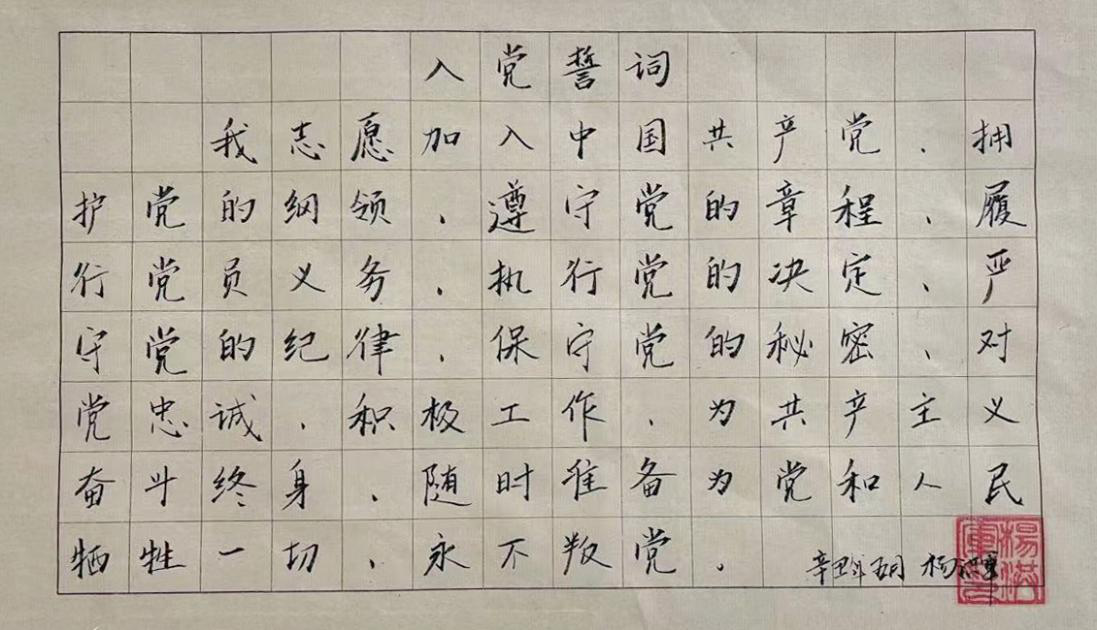 入党誓词
我志愿加入中国共产党、拥
护党的纲领、遵守党的章程、履
行党员义务、执行党的决定、严
守党的纪律、保守党的秘密、对
党忠诚、积极工作、为共产主义
奋斗终身、随时准备为党和人民
牺牲一切、永不叛党、
辛丑年五月 杨洪军
楊洪軍印